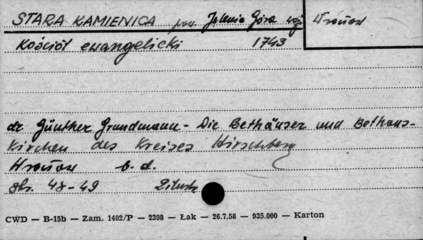 STARA KAMIENICA pow. Jelenia Góra woj. Wrocław
Kościół ewangelicki 1743
dr Günther Grundmann - Die Bethäuser und Bethaus-
kirchen des Kreises Hirschberg
Wrocław b.d.
str. 48-49
CWD — B-15b — Zam. 1402/P — 2398 — Łak — 26.7.58 — 935.000 — Karton